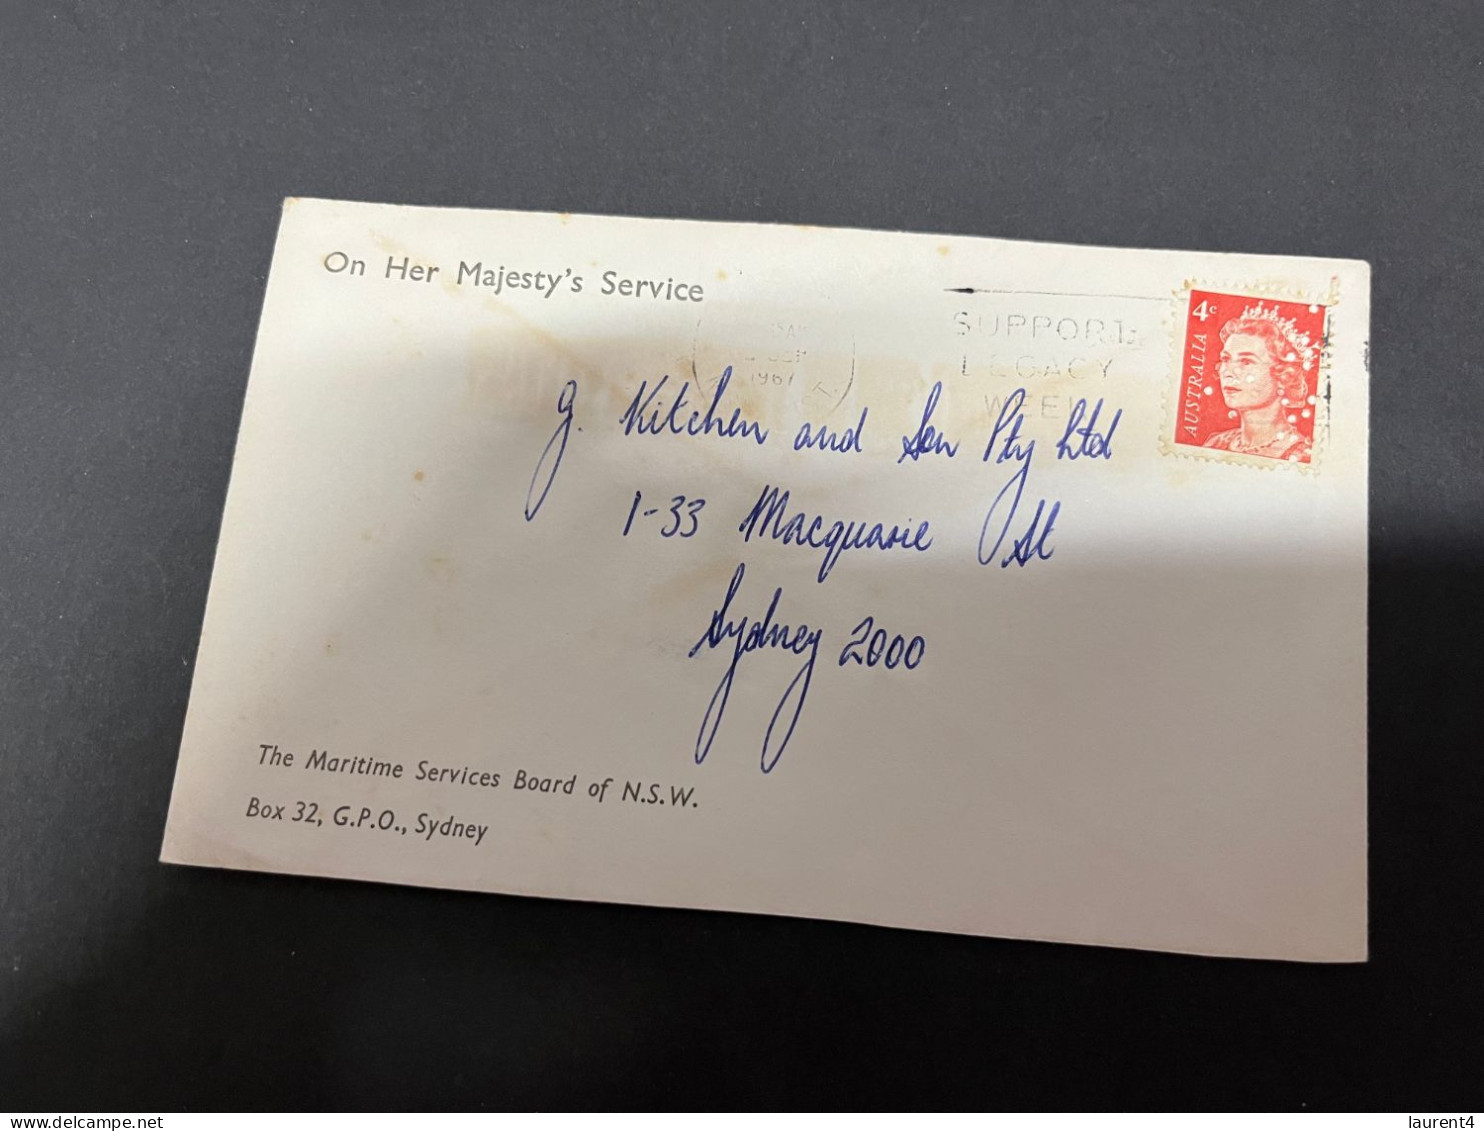 On Her Majesty's Service
SUPPORT
LEGACY
WEEK
SEP
1967
4c
AUSTRALIA
J. Kitchen and Son Pty Ltd
1-33 Macquarie St
Sydney 2000
The Maritime Services Board of N.S.W.
Box 32, G.P.O., Sydney
laurent4